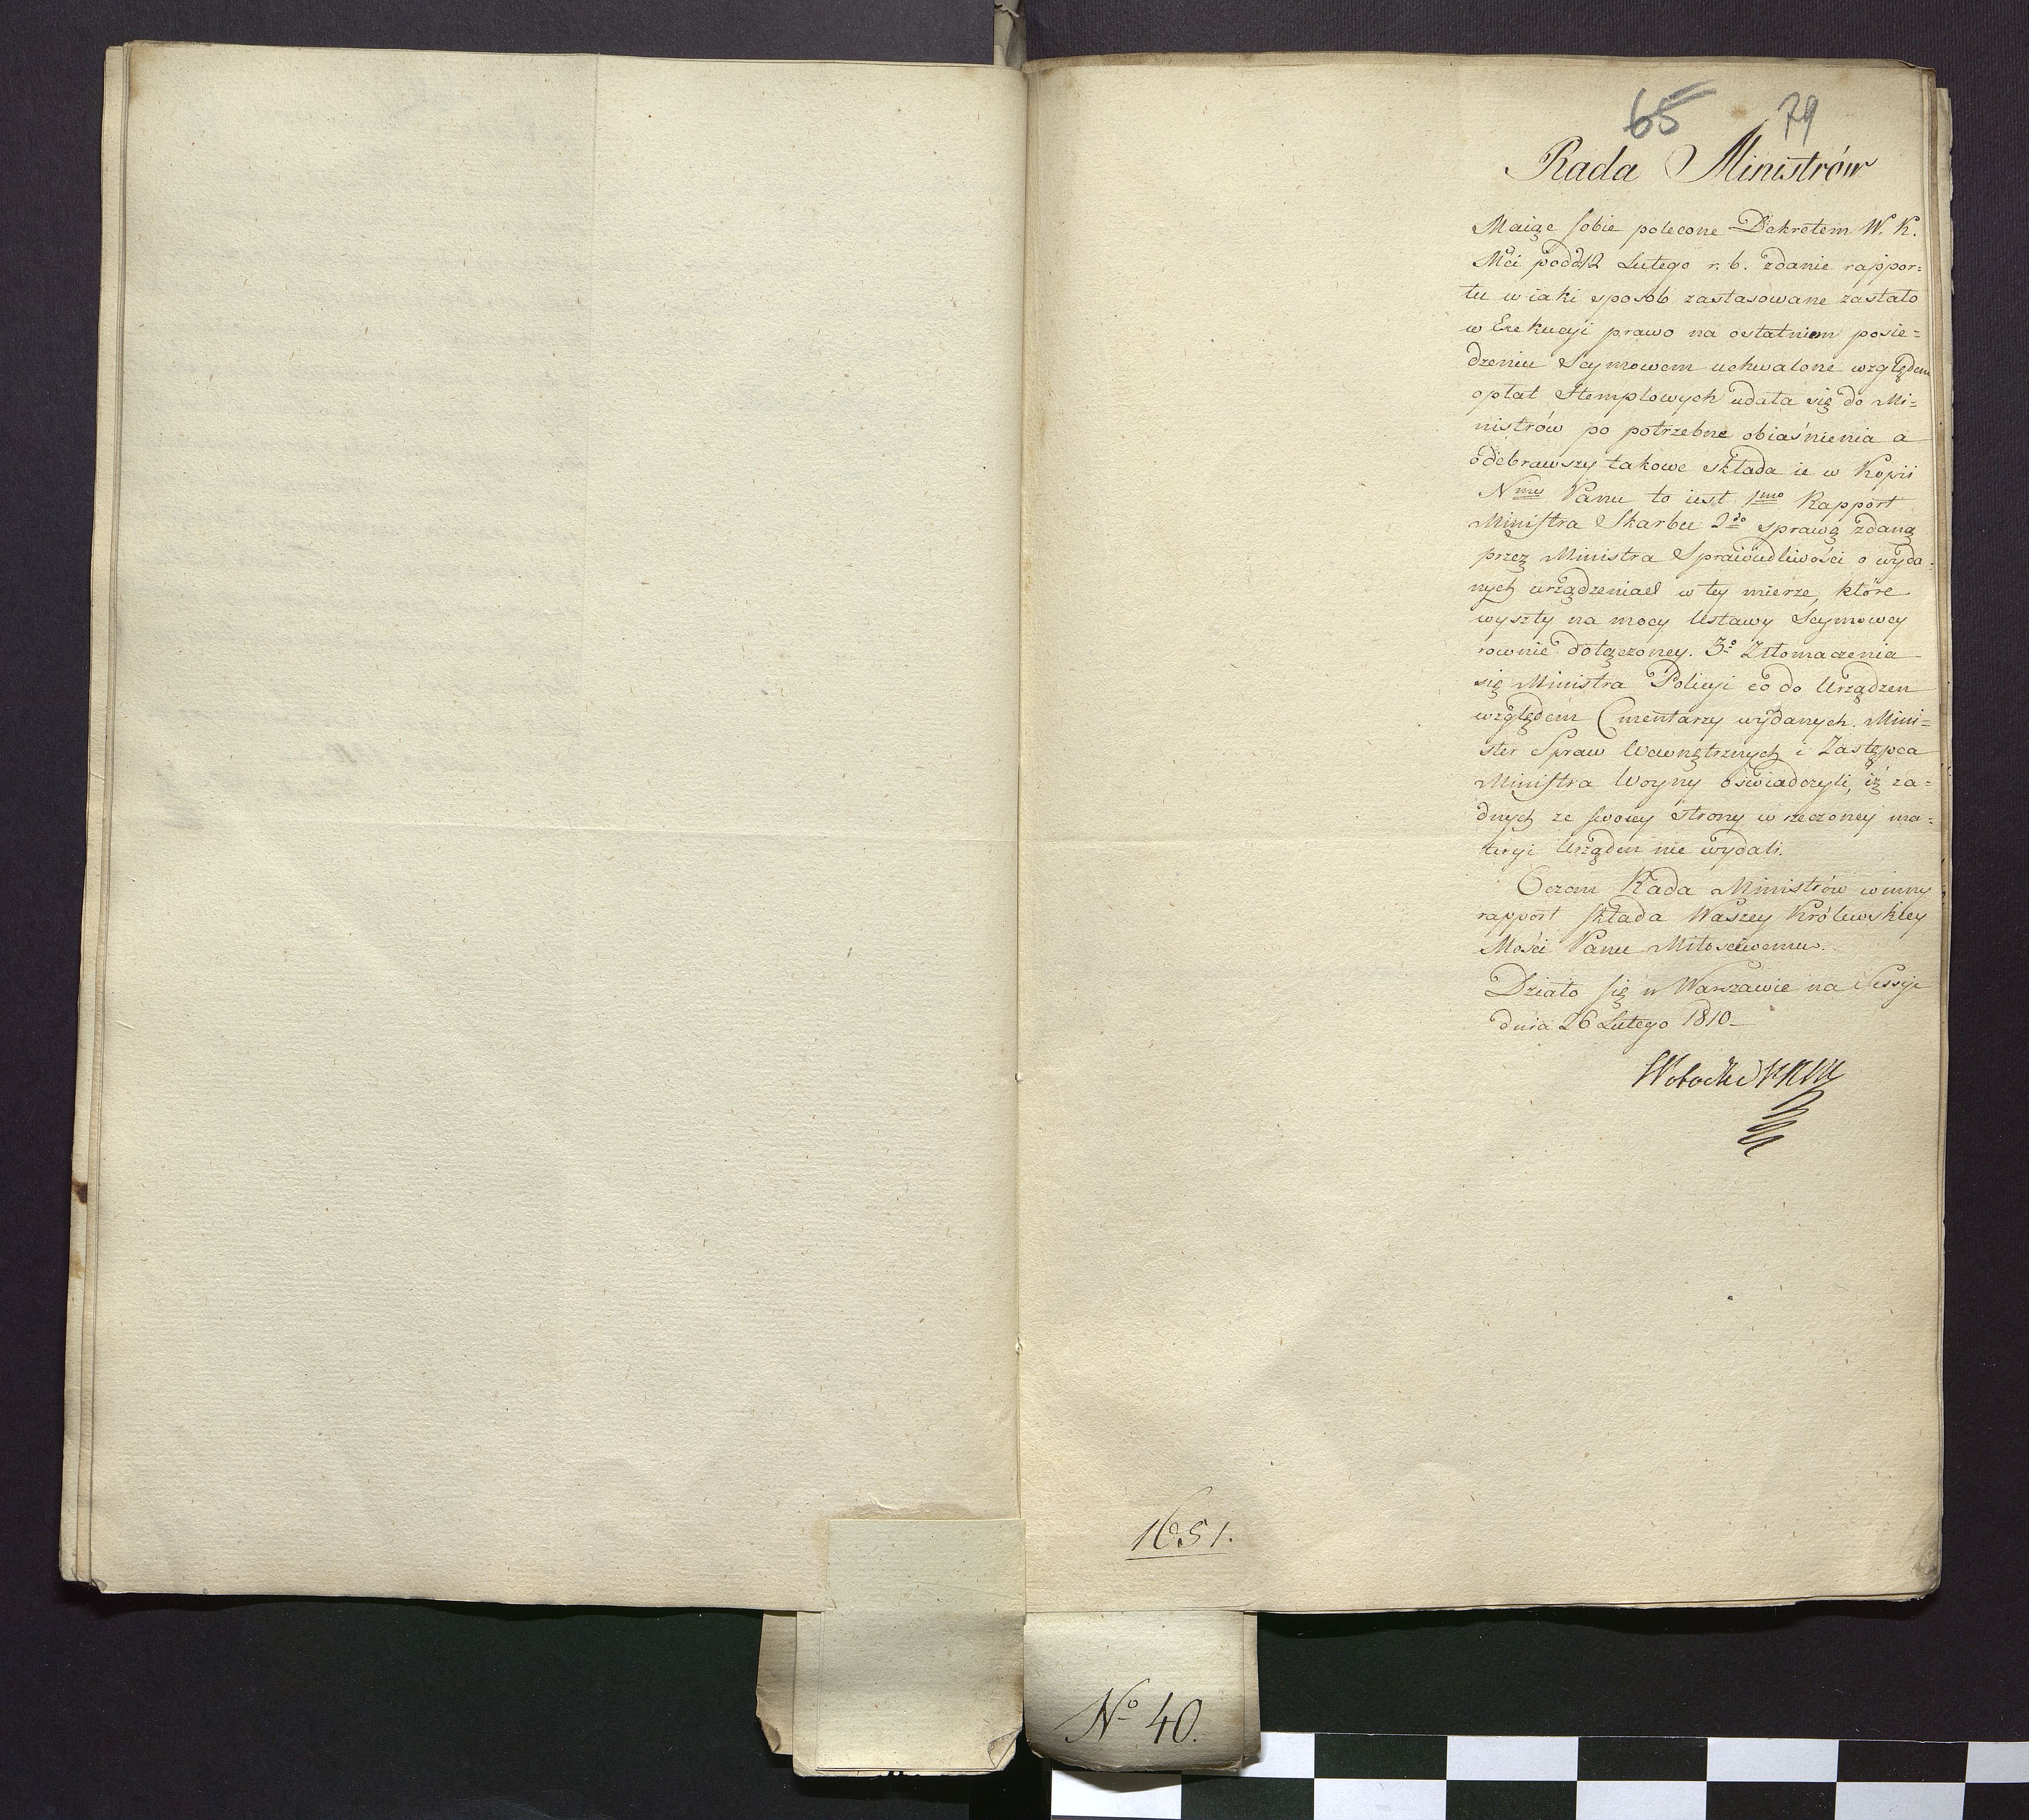 65 79
Rada Ministrów
Maiąc sobie polecone Dekretem W. K.
Mci podd 12 Lutego r. b. zdanie rappor=
tu w iaki sposób zastasowane zastało
w Exekucyi prawo na ostatniem posie=
dzeniu Seymowem uchwalone względem
opłat Stemplowych udała się do Mi=
nistrów po potrzebne obiaśnienia a
odebrawszy takowe składa ie w Kopii
Nmu Panu to iest 1mo Rapport
Ministra Skarbu 2do sprawę zdaną
przez Ministra Sprawiedliwości o wyda=
nych urządzeniach w tey mierze, które
wyszły na mocy Ustawy Seymowey
równie dołączoney. 3o Ztłomaczenia
się Ministra Policyi co do Urządzeń
względem Cmentarzy wydanych. Mini=
ster Spraw Wewnętrznych i Zastępca
Ministra Woyny oświadczyli, iż ża=
dnych ze swoiey strony w rzeczoney ma=
teryi Urządzeń nie wydali.
O czem Rada Ministrów winny
rapport składa Waszey Królewskiey
Mości Panu Miłościwemu.
Działo się w Warszawie na Sessyi
dnia 26 Lutego 1810
1651.
No 40.